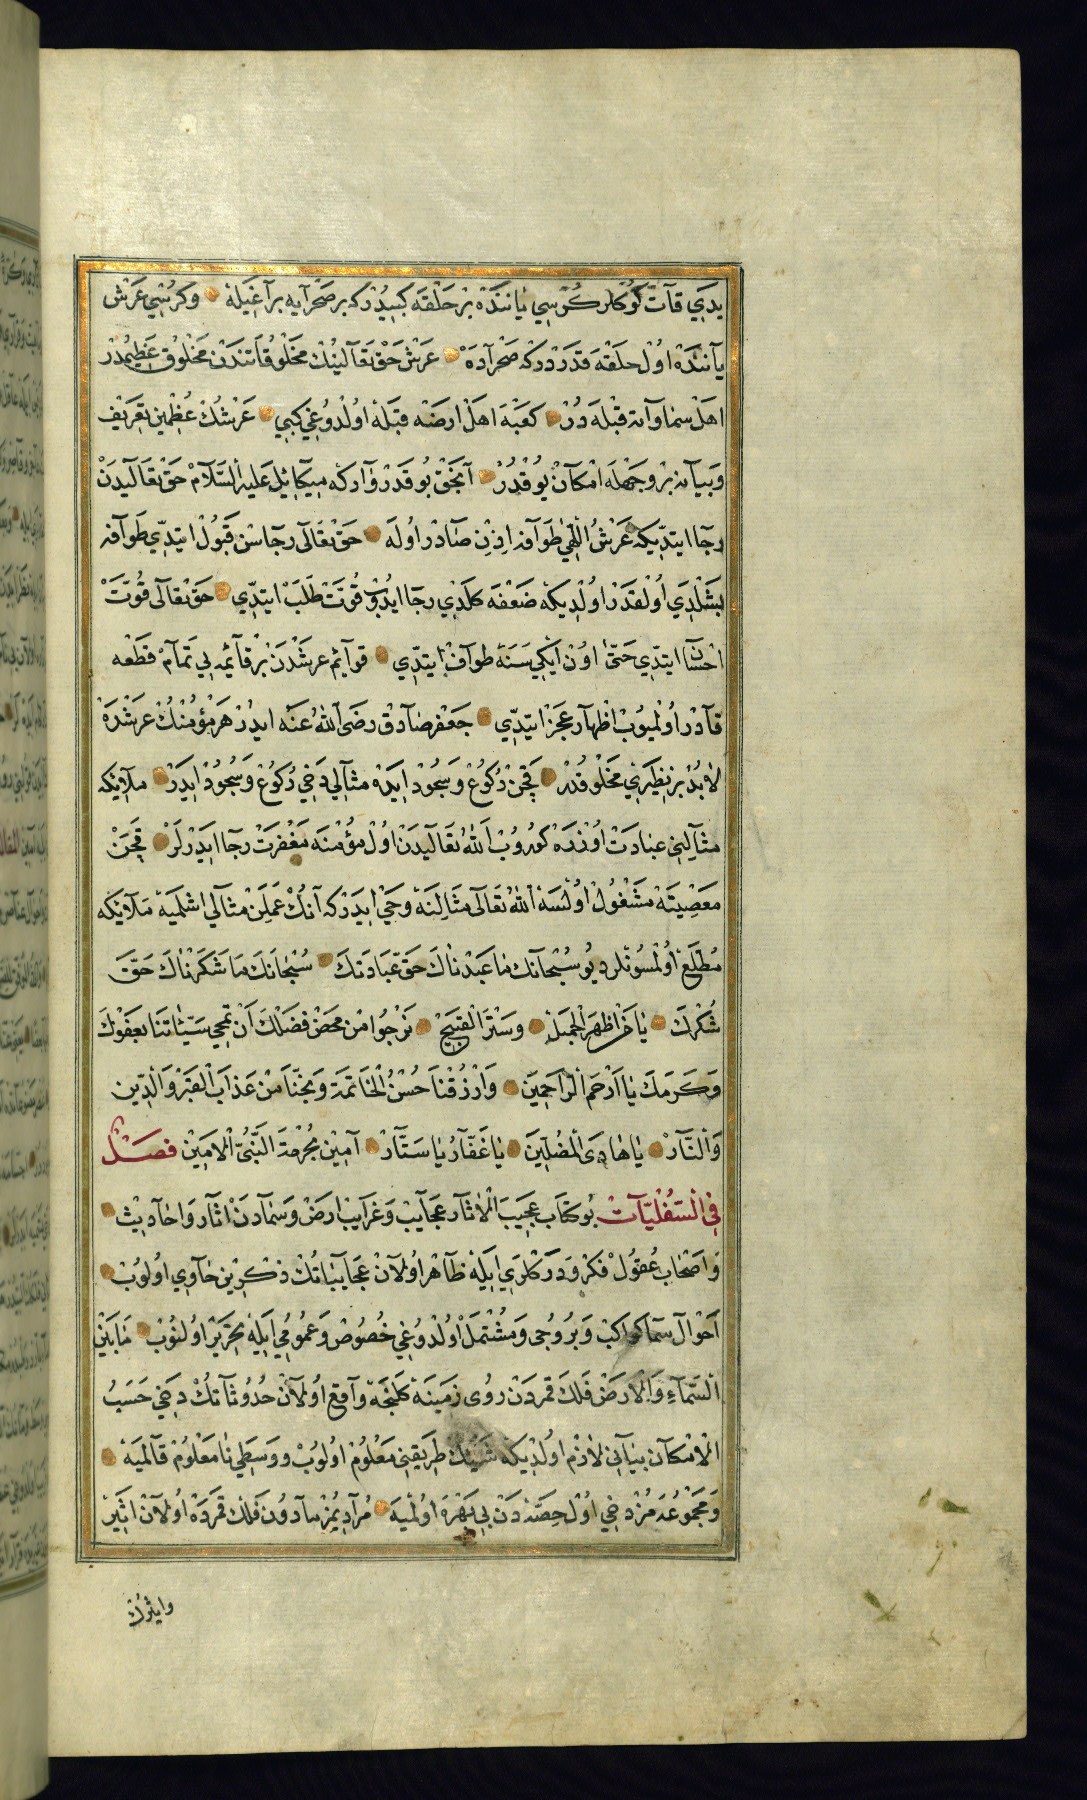 يدي قات كوكلر كرسي ياننده بر حلقه كبيدركه بر صحرايه براغيله وكرسي عرش
ياننده اول حلقه قدردركه صحراده عرش حق تعالينك مخلوقاتندن مخلوق عظيمدر
اهل سماواته قبله در كعبه اهل ارضه قبله اولدوغي كبي عرشك عظمين تعريف
وبيانه بر وجهله امكان يوقدر انجق بو قدر واركه ميكائيل عليه السلام حق تعاليدن
رجا ايتديكه عرش الهي طوافنه اذن صادر اوله حق تعالى رجاسن قبول ايتدي طوافنه
بشلدي اولقدر اولديكه ضعفه كلدي رجا ايدوب قوت طلب ايتدي حق تعالى قوت
احسان ايتدي حتى اون ايكي سنه طواف ايتدي قوايم عرشدن بر قائمه يي تمام قطعه
قادر اولميوب اظهار عجز ايتدي جعفر صادق رضى الله عنه ايدر هر مؤمنك عرشده
لابد بر نظيري مخلوقدر قچن ركوع وسجود ايده مثالي دخي ركوع وسجود ايدر ملائكه
مثالني عبادت اوزره كوروب الله تعاليدن اول مؤمنه مغفرت رجا ايدرلر قچن
معصيته مشغول اولسه الله تعالى مثالنه وحي ايدركه آنك عملن مثالي اشلميه ملائكه
مطلع اولمسونلر ديو سبحانك ما عبدناك حق عبادتك سبحانك ما شكرناك حق
شكرك يا من اظهر الجميل وستر القبيح نرجوا من محض فضلك ان تمحي سيئاتنا بعفوك
وكرمك يا ارحم الراحمين وارزقنا حسن الخاتمة ونجنا من عذاب القبر والدين
والنار يا هادى المضلين يا غفار يا ستار آمين بحرمة النبي الامين فصل
في السفليات بو كتاب عجيب الاثار عجايب وغرايب ارض وسمادن اثار واحاديث
واصحاب عقول فكر ودركلري ايله ظاهر اولان عجايباتك ذكرين حاوي اولوب
احوال سما كواكب وبروجى ومشتمل اولدوغي خصوص وعمومي ايله تحرير اولنوب ما بين
السماء والارض فلك قمردن روى زمينه كلنجه واقع اولان حدوثاتك دخي حسب
الامكان بياني لازم اولديكه طريقني معلوم اولوب ووسطي نا معلوم قالميه
ومجموعه مز دخي اول حصه دن بي بهره اولميه مراديمز مادون فلك قمرده اولان اثير